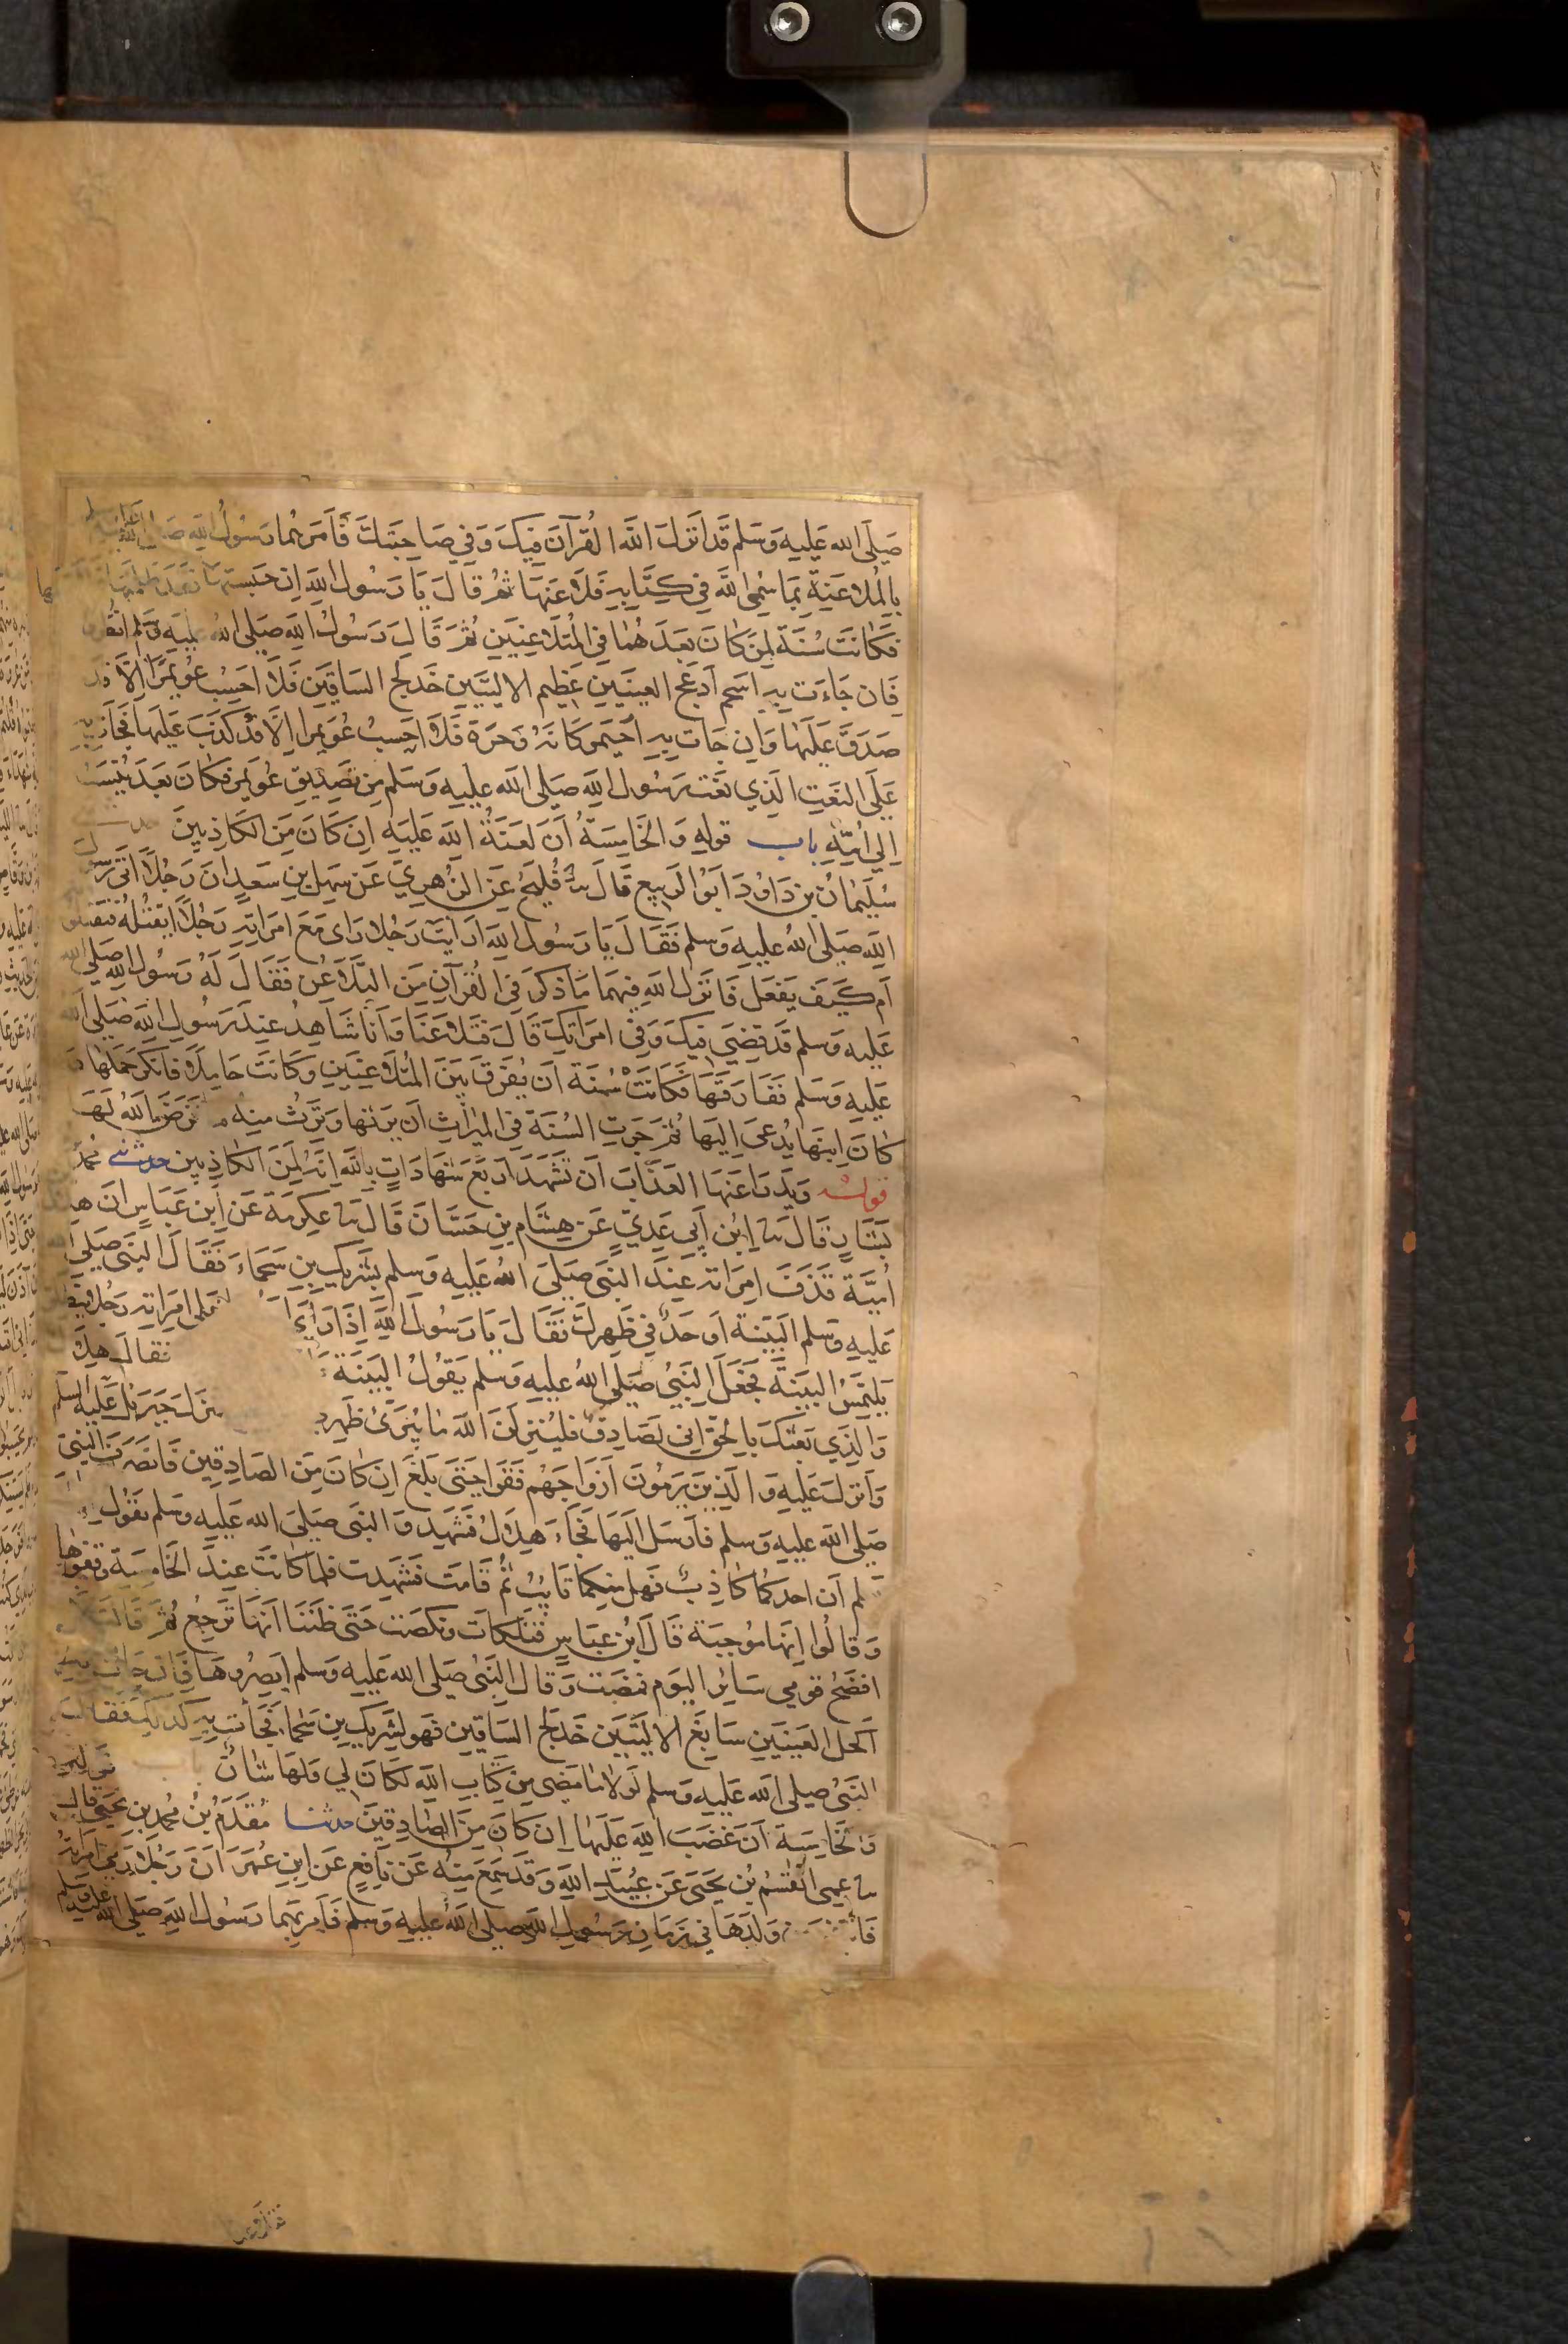 صَلَّى الله عَلَيهِ وَسَلم قَد اَنزَلَ اللَّه القُرآنَ فِيكَ وَفِي صَاحِبَتِكَ فَاَمَرَهُمَا رَسُولُ اللهِ صَلى الله عليه وسلم
بِالمُلاعَنَةِ بِمَا سَمَّى اللَّه فِي كِتَابِهِ فَلَاعَنَهَا ثُمَّ قَالَ يَا رَسُولَ اللهِ اِن حَبَستهَا فَقَد ظلمتها
فكَانَت سُنَّة لِمَن كَانَ بَعدَ هُمَا فِي المُتَلَاعِنَينِ ثُمَّ قَالَ رَسُولُ اللهِ صَلى الله عليهِ وسلم انظروا
فَاِن جَاءَت بِهِ اسحم اَدعَج العينَينِ عَظِيم الاليَتَينِ خَدلَّج السَاقَينِ فَلَا اَحسِب عُوَيمرًا اِلَّا قَد
صَدَقَ عَلَيهَا وَاِن جَات بِهِ اُحَيمر كَانَهُ وَحرَة فَلَا اَحسِبُ عُوَيمرا اِلَّا قَد كَذَبَ عَلَيهَا فَجَآت بِهِ
عَلَى النَعتِ الَّذِي نَعَت رَسُول اللهِ صَلى الله عَلَيهِ وَسَلم مِن تَصدِيقِ عُوَيمر فكَانَ بَعدَ يُنسَبُ
اِلي اُمِّهِ باب قولهِ وَالخَامِسَةُ اَنَّ لَعنَةُ اللهِ عَلَيهِ اِن كَانَ مِنَ الكَاذِبِينَ حدثني
سُلَيمَانُ بن دَاوُدَ اَبُو الرَبِيع قَالَ نا فُلَيحُ عَن الزُهرِيّ عَن سَهلِ بنِ سَعدٍ ان رَجُلًا اَتى رسول
الله صَلى اللهُ عليهِ وَسلم فَقَالَ يَا رَسُول اللهِ اَرَايتَ رَجُلا رَاى مَعَ امرَاتِهِ رَجُلًا ايَقتُلُهُ فتقتلونه
اَم كَيفَ يَفعَل فَانزَل الله فيهمَا مَا ذكرَ فِي القُرآنِ مِنَ التَّلَاعُنِ فَقَالَ لَهُ رَسُول اللهِ صَلى الله
عَلَيهِ وَسلم قَد قضيَ فيكَ وَفي امرَاتِكَ قَالَ فَتَلَاعَنَا وَاَنَا شَاهِدُ عِندَ رَسُولِ اللهِ صَلى الله
عَلَيهِ وَسَلم فَفَارَقَهَا فكَانَت سُنَة اَن يُفَرَقَ بَينَ المُتَلَاعِنَينِ وَكَانَت حَامِلًا فَانكَرَ حَملَهَا وَ
كَانَ اِبنَهَا يُدعَى اِليهَا ثُمَّ جَرَتِ السُنَة فِي المِيرَاثِ اَن يَرثهَا وَتَرَثُ مِنهُ مَا فَرَضَ اللهُ لَهَا
قوله وَيَدرَا عَنهَا العَذَابَ اَن تَشهَدَ اَربَعَ شَهَادَاتٍ بِاللهِ اِنَّهُ لَمِنَ الكَاذِبِين حدثني مُحمد
بَشَّارٍ قَالَ نا اِبنُ اَبِي عَدِيّ عَن هِشَام بنِ حَسَّانَ قَالَ نا عِكرِمَة عَن اِبن عَبَاسٍ اَن هلال
اُمَيَّة قَذَفَ امرَاته عِندَ النَبَي صَلَى اللهُ عَليهِ وَسلم بشَرِيك بن سَحمَاءَ فَقَالَ النَبَي صَلى
عَلَيهِ وسلم البَيّنَة اَو حَدٌّ فِي ظَهرِكَ فَقَالَ يَا رَسُولَ اللهِ اِذَا رَاىَ على امرَاتِهِ رَجُلا ينطلق
يَلتَمِسُ البَيّنَةَ فجَعَلَ النَبَيُ صَلى اللهُ عليهِ وَسلم يَقُولُ البَيّنَة فقالَ هِلَال
وَالذِي بَعَثكَ بِالحَقِّ اِني لَصَادِقٌ فليُنزِلَنَّ اللهَ مَا يُبَرِّئُ ظَهرِي نزلَ جِبرَيلُ عَلَيهِ السلم
وَاَنزلَ عَلَيهِ وَالَّذِينَ يَرمُونَ اَزوَاجَهُم فَقَرَا حَتَى بَلَغَ اِن كَانَ مِنَ الصَادِقِين فَانصَرَفَ النبي
صَلى الله عليهِ وَسلم فَاَرسَل اليهَا فجَاءَ هِلَالُ فَشَهِدَ وَالنبي صَلى الله عَليهِ وسَلم يَقُول
يَعلم اَن احدَكمَا كَاذِبٌ فَهل مِنكمَا تَايبٌ ثُمَّ قَامَت فَشَهِدَت فَلمَّا كانَت عِندَ الخَامِسَة وقفوهَا
وَقَالُوا اِنهَا مُوجِبَة قَالَ ابنُ عَبَاسٍ فَتَلَكَّات وَنكَصَت حَتَى ظَنَنَا اَنهَا تَرجِعُ ثُمَّ قَالَت لا
افضَحُ قومِي سَايِرَ اليَوم فَمَضَت وَقَالَ النَبَيُ صَلى الله عَليهِ وسلم ابصِرُوهَا فَاِن جَاءت به
اَكحل العَينَينِ سَابِغَ الاليَتَينِ خَدلَّج السَاقَينِ فَهوَ لِشَرِيك بن سَحمَا فَجَآت بِهِ كَذَلِكَ فَقَالَ
النَبَيُ صلى الله عَليهِ وَسَلم لَولَا مَا مَضَى مِن كِتَابِ اللهِ لكَانَ لِي وَلَهَا شَانٌ باب قوله
وَالخَامِسَة اَنَّ غَضَبَ اللهِ عَلَيهَا اِن كَانَ مِنَ الصَادِقِينَ حدثنا مُقَدَّمُ بنُ مُحمد بن يَحيى قال
نا عمي القسمُ بن يَحيَى عَن عُبيدِ اللهِ وَقَد سَمِعَ مِنهُ عَن نَافِعٍ عَن ابنِ عُمَرَ اَنَّ رَجُلًا رَمى امرَاته
فَانتفى من وَلَدهَا فِي زَمَانِ رَسُولِ اللهِ صَلى اللهُ عليهِ وَسلم فَاَمرَ بهِمَا رَسُول اللهِ صَلى الله عليه وسلم